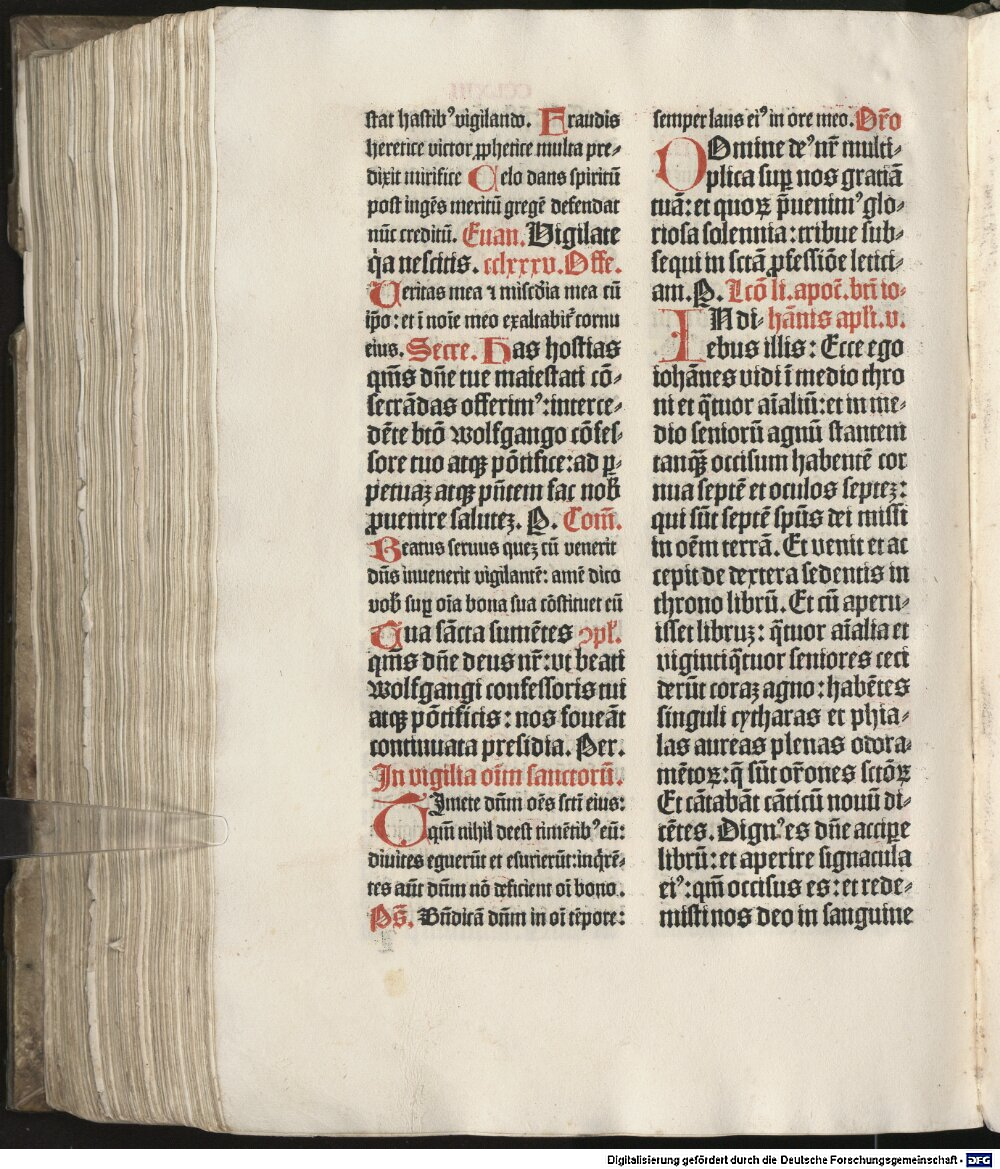 stat hastib⁹ vigilando. Fraudis
heretice victor ꝓphetice multa pre-
dixit mirifice Celo dans spiritū
post ingēs meritū gregē defendat
nūc creditū. Euan. Vigilate
q̇a nescitis. cclxxxv. Offe.
Veritas mea ⁊ miscd̄ia mea cū
ip̄o: et ī noīe meo exaltabit᷑ cornu
eius. Secre. Has hostias
qm̄s dn̄e tue maiestati cō-
secrādas offerim⁹: interce-
dēte btō wolfgango cōfes-
sore tuo atqꝫ pōtifice: ad ꝑ-
petuaꝫ atqꝫ pn̄tem fac nob̄
ꝓuenire saluteꝫ. P. Com̄.
Beatus seruus queꝫ cū venerit
dn̄s inuenerit vigilantē: amē dico
vob̄ suꝑ oīa bona sua cōstituet eū
Qua sācta sumētes ↄpl̄.
qm̄s dn̄e deus nr̄: vt beati
wolfgangi confessoris tui
atqꝫ pōtificis: nos foueāt
continuata presidia. Per.
In vigilia oīm sanctorū.
Timete dn̄m oēs scti eius:
qm̄ nihil deest timētib⁹ eū:
diuites eguerūt et esurierūt: inq̇rē-
tes aūt dn̄m nō deficient oī bono.
Ps̄. Bn̄dicā dn̄m in oī tēpore:
semper laus ei⁹ in ore meo. Or̄o
DOmine de⁹ nr̄ multi-
plica suꝑ nos gratiā
tuā: et quoꝝ p̄uenim⁹ glo-
riosa solennia: tribue sub-
sequi in sctā ꝓfessiōe letici-
am. P. Lcō li. apoc̄. bt̄i io-
IN di- hānis apl̄i. v.
ebus illis: Ecce ego
iohānes vidi ī medio thro
ni et q̄tuor aīaliū: et in me-
dio seniorū agnū stantem
tanqꝫ occisum habentē cor
nua septē et oculos septeꝫ:
qui sūt septē sp̄us dei missi
in oēm terrā. Et venit et ac
cepit de dextera sedentis in
throno librū. Et cū aperu-
isset libruꝫ: q̄tuor aīalia et
viginti q̄tuor seniores ceci
derūt coraꝫ agno: habētes
singuli cytharas et phia-
las aureas plenas odora-
mētoꝝ: q̄ sūt or̄ones sctōꝝ
Et cātabāt cāticū nouū di-
cētes. Dign⁹ es dn̄e accipe
librū: et aperire signacula
ei⁹: qm̄ occisus es: et rede-
misti nos deo in sanguine
Digitalisierung gefördert durch die Deutsche Forschungsgemeinschaft - DFG